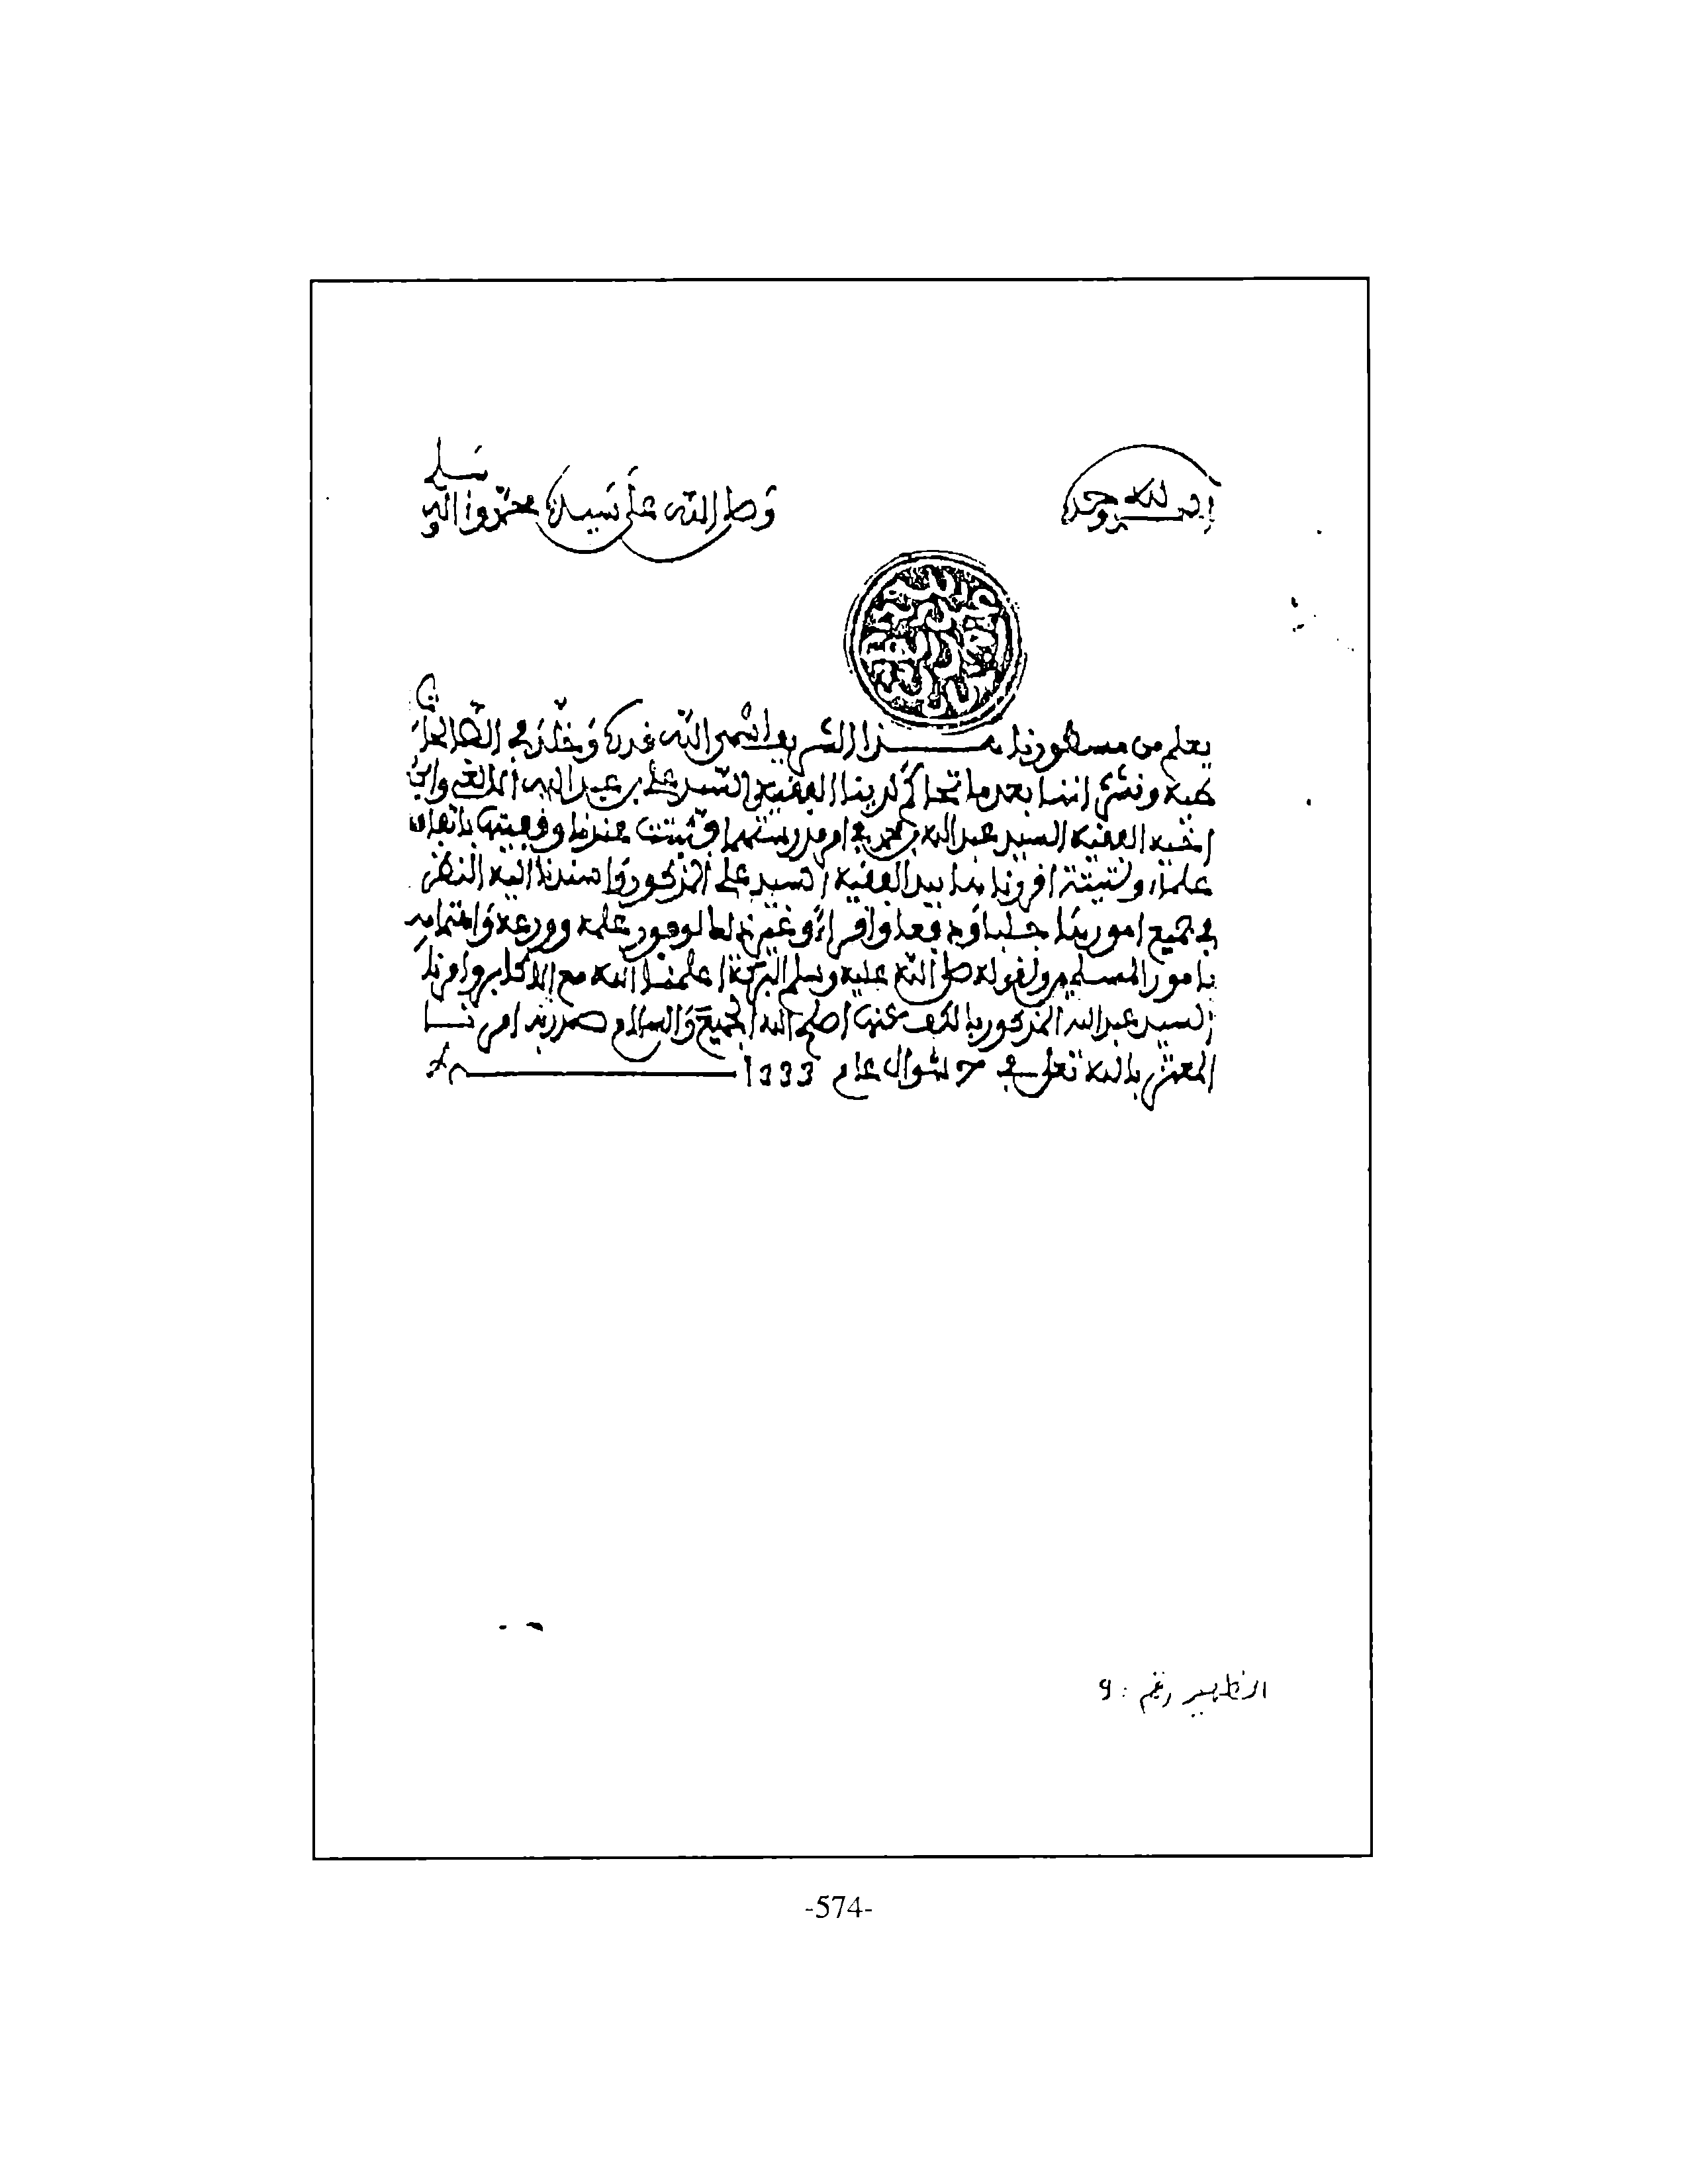 الحمد لله وحده
وصلى الله على سيدنا محمد وءاله وسلم
يعلم من مسطورنا هذا الشريف اسمى الله قدره وخلد في الصالحات
طيه ونشره اننا بعدما تحاكم لدينا الفقيه السيد علي بن عبد الله الالغي وابن
اخيه الفقيه السيد عبد الله بن محمد في امر مدرستهما وثبتت عندنا وقفيتها باتفاق
علماء اقررنا بيد الفقيه السيد علي المذكور واسندنا اليه النظر
في جميع امورها جلبا ودفعا واقراء وغير ذلك لوفور علمه وورعه واهتمامه
بامور المسلمين ولقوله صلى الله عليه وسلم البركة اعلمنا الله مع الاكابر وامرنا
السيد عبد الله المذكور بالكف عنها اصلح الله الجميع والسلام صدر به امرنا
المعتز بالله تعلى في 7 شوال عام 1333
الظهير رقم : 9
-574-